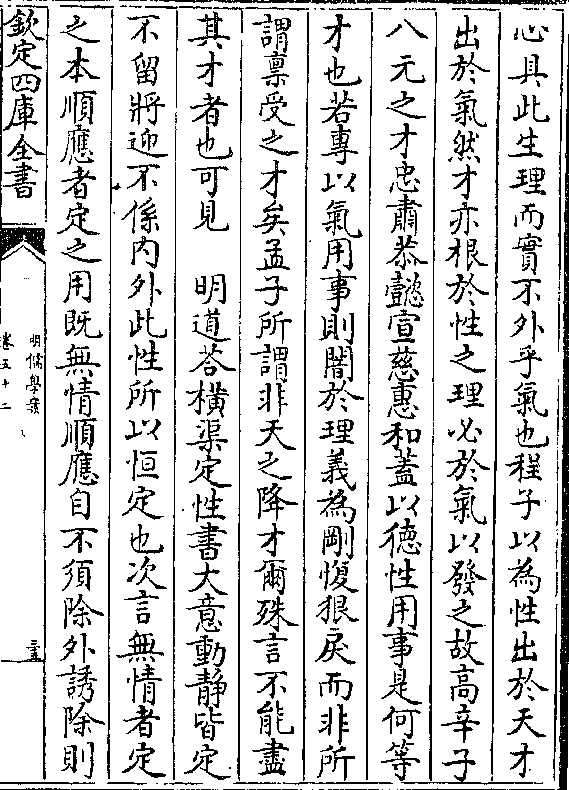 心具此生理而實不外乎氣也程子以為性出於天才
出於氣然才亦根於性之理必於氣以發之故高辛子
八元之才忠肅恭懿宣慈惠和蓋以德性用事是何等
才也若專以氣用事則闇於理義為剛愎狠戾而非所
謂禀受之才矣孟子所謂非天之降才爾殊言不能盡
其才者也可見　明道答橫渠定性書大意動靜皆定
不留將迎不係内外此性所以恒定也次言無情者定
之本順應者定之用既無情順應自不須除外誘除則
欽定四庫全書
明儒學案
卷五十二
三五